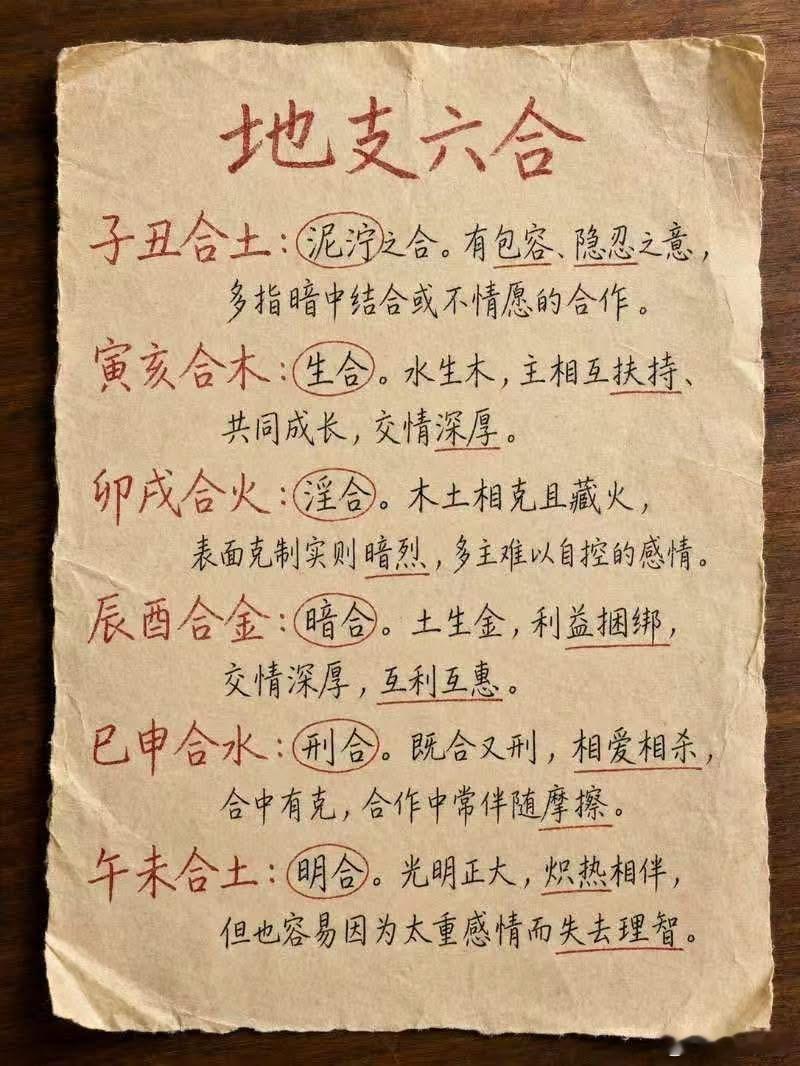 地支六合
子丑合土：泥泞之合。有包容、隐忍之意，
多指暗中结合或不情愿的合作。
寅亥合木：生合。水生木，主相互扶持、
共同成长，交情深厚。
卯戌合火：淫合。木土相克且藏火，
表面克制实则暗烈，多主难以自控的感情。
辰酉合金：暗合。土生金，利益捆绑，
交情深厚，互利互惠。
巳申合水：刑合。既合又刑，相爱相杀，
合中有克，合作中常伴随摩擦。
午未合土：明合。光明正大，炽热相伴，
但也容易因为太重感情而失去理智。